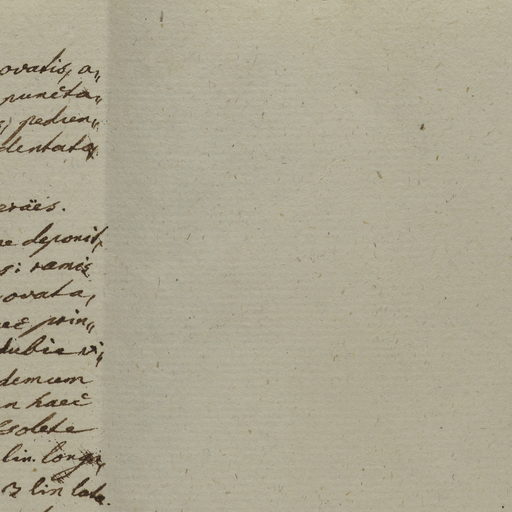 ovatis, a„
puncta„
pedun„
dentata,
eräes.
ne deponit,
s: ramis
ovata,
haec prin„
dubie vi„
demum
n haec
solete
lin. longa,
2 lin lata.